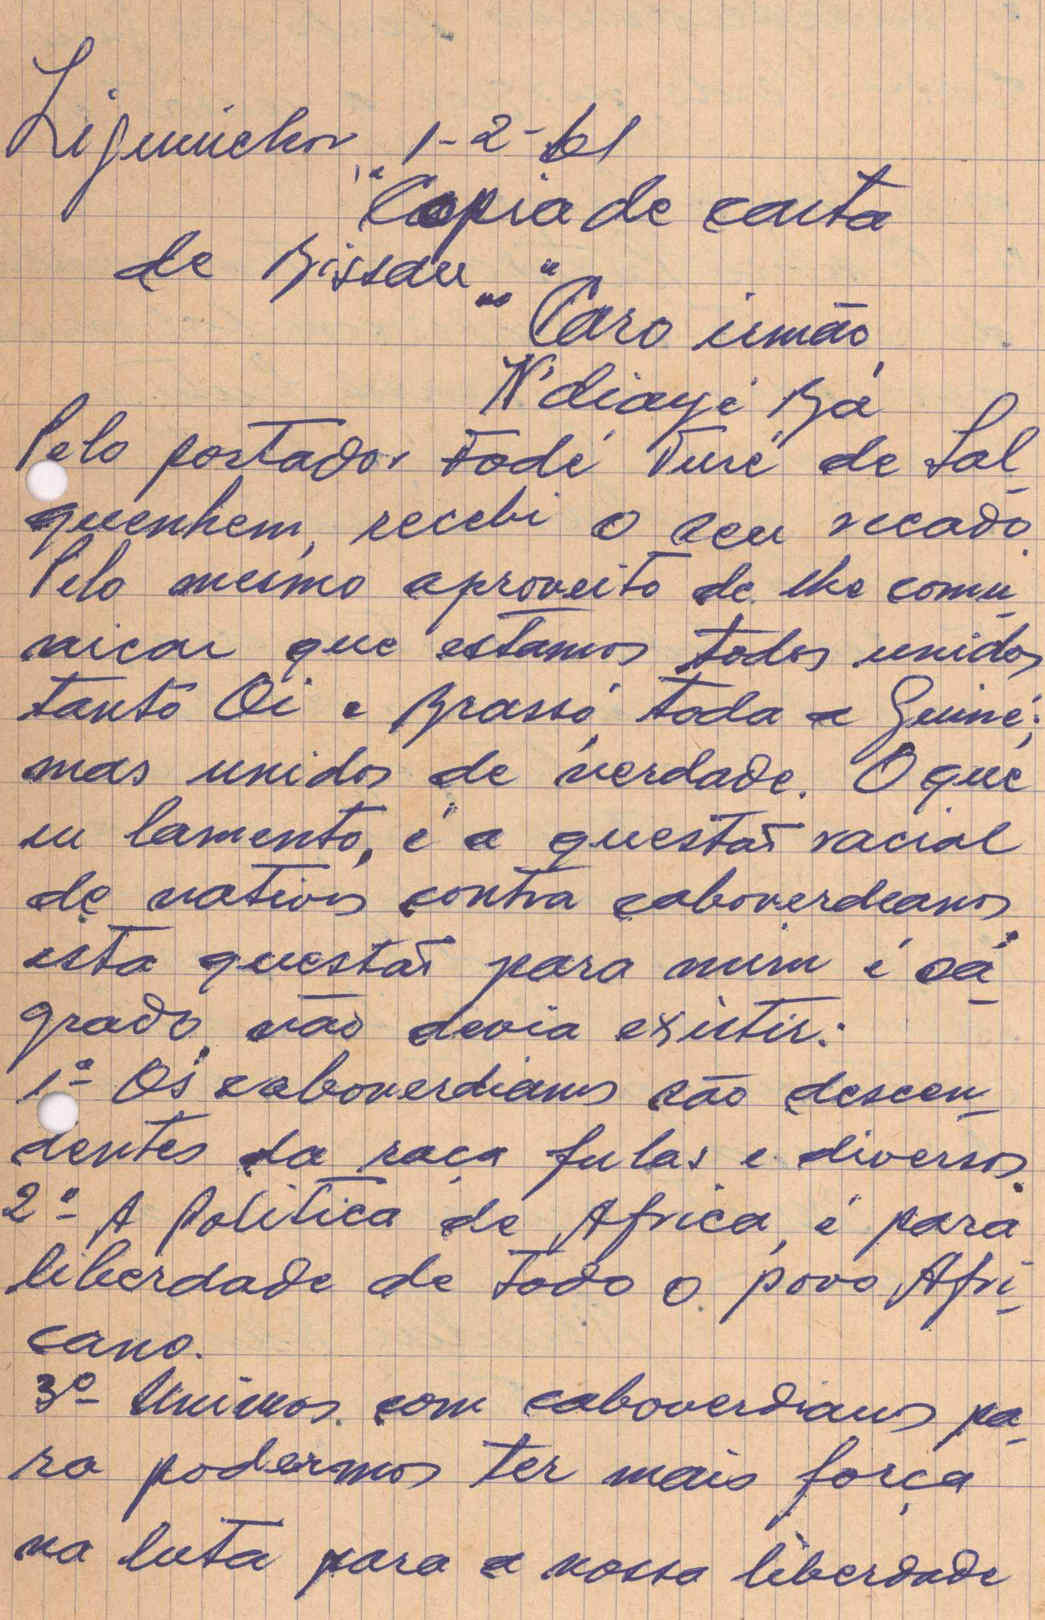 Ziguinchor, 1-2-61
"Copia de carta
de Bissau" "Caro irmão,
N'diayé Bá
Pelo portador Fodé Turé de Sal_
quenhem, recebi o seu recado.
Pelo mesmo aproveito de lhe comu_
nicar que estamos todos unidos
tanto Oi e Brassó, toda a Guiné;
mas unidos de verdade. O que
eu lamento, é a questão racial
de nativos contra caboverdeanos,
esta questão para mim é sá_
grado, não devia existir:
1º- Os caboverdianos são descen_
dentes da raça fulas e diversos.
2º- A Politica de Africa, é para
liberdade de todo o povo Afri_
cano.
3º- Unimos com caboverdianos pa_
ra podermos ter mais força
na luta para a nossa liberdade